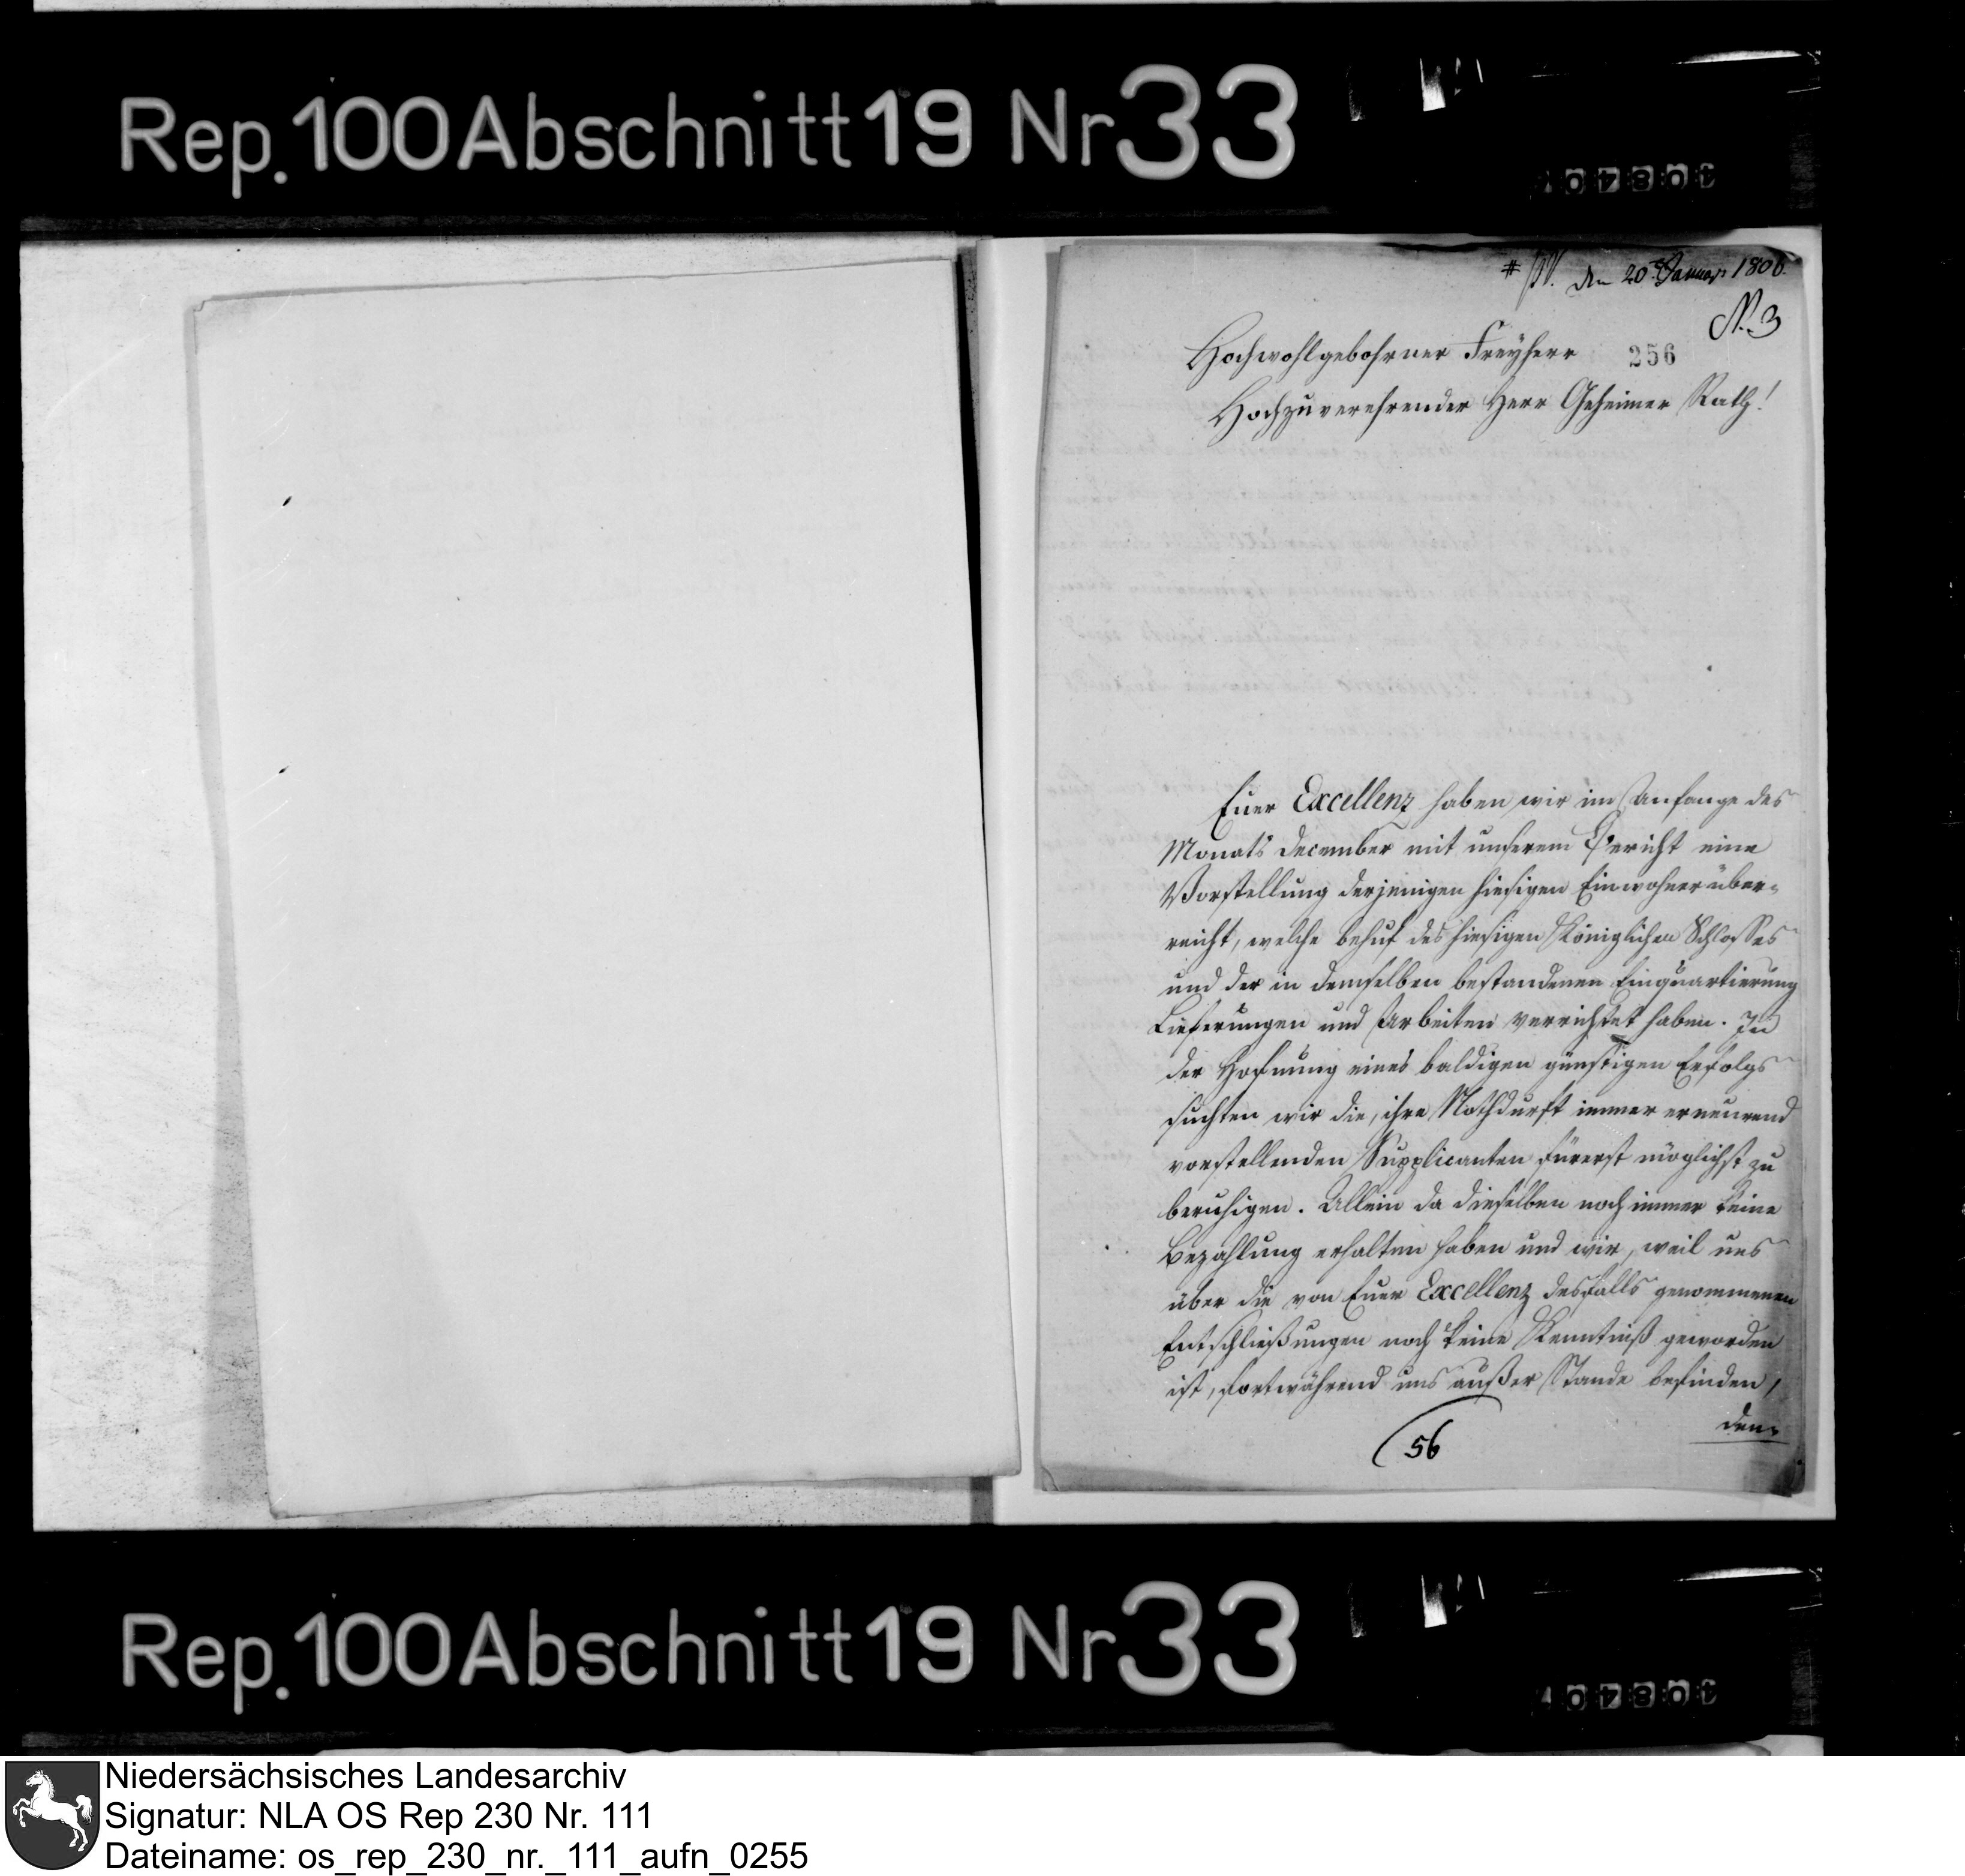 Rep. 100 Abschnitt 19 Nr 33
den 20t Januar 1806.
N. 3
Hochwohlgebohrner Freyherr
256
Hochzuverehrender Herr Geheimer Rath!
Euer Excellenz haben wir im Anfange des
Monats December mit unserem Bericht eine
Vorstellung derjenigen hiesigen Einwohner über-
reicht, welche behuf des hiesigen Königlichen Schlosses
und der in demselben bestandenen Einquartierung
Lieferungen und Arbeiten verrichtet haben. In
der Hofnung eines baldigen günstigen Erfolgs
suchten wir die, ihre Nothdurft immer erneurend
vorstellenden Supplicanten fürerst möglichst zu
beruhigen. Allein da dieselben noch immer keine
Bezahlung erhalten haben und wir, weil uns
über die von Euer Excellenz desfalls genommenen
Entschließungen noch keine Kenntniß geworden
ist, fortwährend uns außer Stande befinden,
den-
56
Rep. 100 Abschnitt 19 Nr 33
Niedersächsisches Landesarchiv
Signatur: NLA OS Rep 230 Nr. 111
Dateiname: os_rep_230_nr._111_aufn_0255